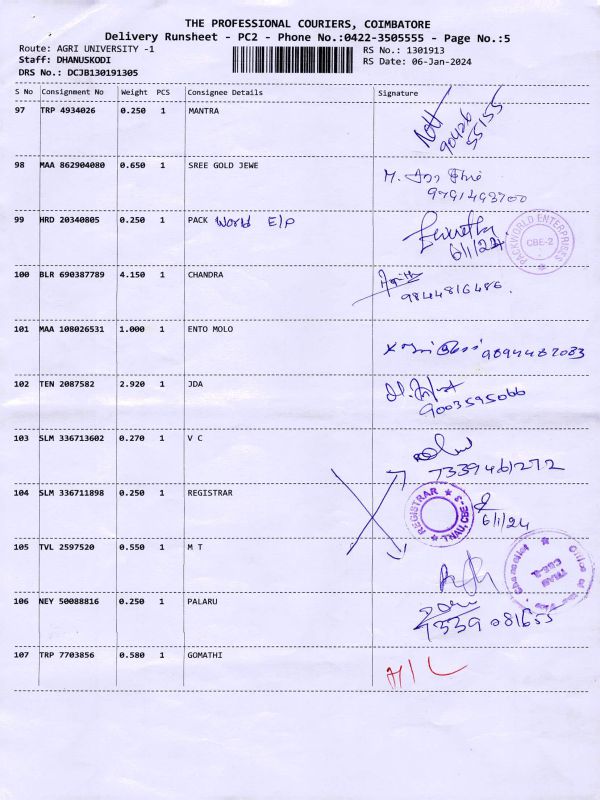 THE PROFESSIONAL COURIERS, COIMBATORE
Delivery Runsheet - PC2 - Phone No.:0422-3505555 - Page No.:5
Route: AGRI UNIVERSITY -1 RS No.: 1301913
Staff: DHANUSKODI RS Date: 06-Jan-2024
DRS No.: DCJB130191305
S No Consignment No Weight PCS Consignee Details Signature
97 TRP 4934026 0.250 1 MANTRA
90426
55155
98 MAA 862904080 0.650 1 SREE GOLD JEWE
M.
9791493700
99 HRD 20340805 0.250 1 PACK World E/P
6/1/24
PACKWORLD ENTERPRISES
CBE-2
100 BLR 690387789 4.150 1 CHANDRA
9844816486.
101 MAA 108026531 1.000 1 ENTO MOLO
9894487083
102 TEN 2087582 2.920 1 JDA
9003595066
103 SLM 336713602 0.270 1 V C
7339461272
104 SLM 336711898 0.250 1 REGISTRAR
REGISTRAR
TNAU, CBE-3
6/1/24
105 TVL 2597520 0.550 1 M T
Office of the
TNAU
CBE-3.
106 NEY 50088816 0.250 1 PALARU
7339081653
107 TRP 7703856 0.580 1 GOMATHI